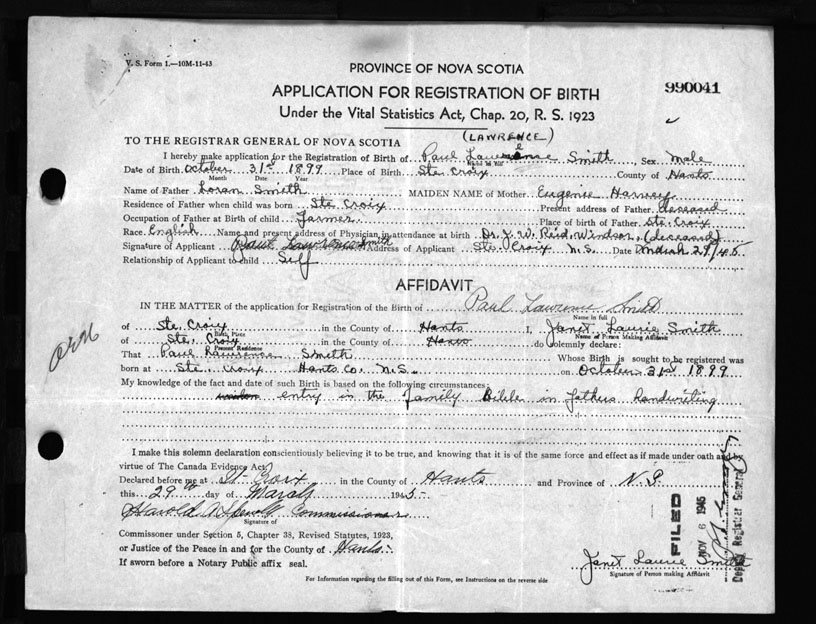 V. S. Form 1.—10M-11-43
PROVINCE OF NOVA SCOTIA
APPLICATION FOR REGISTRATION OF BIRTH
990041
Under the Vital Statistics Act, Chap. 20, R. S. 1923
(LAWRENCE)
TO THE REGISTRAR GENERAL OF NOVA SCOTIA
I hereby make application for the Registration of Birth of Paul Lawrence Smith, Sex Male
Name in full
Date of Birth October 31st 1899 Place of Birth Ste Croix County of Hants
Month Date Year
Name of Father Loran Smith MAIDEN NAME of Mother Eugenie Harvey
Residence of Father when child was born Ste Croix Present address of Father deceased
Occupation of Father at Birth of child Farmer Place of birth of Father Ste. Croix
Race English Name and present address of Physician in attendance at birth Dr. J. W. Reid, Windsor, (deceased)
Signature of Applicant Paul Lawrence Smith Address of Applicant Ste. Croix N.S. Date March 29/45
Relationship of Applicant to child Self
AFFIDAVIT
IN THE MATTER of the application for Registration of the Birth of Paul Lawrence Smith
Name in full
of Ste. Croix in the County of Hants I, Janet Laurie Smith
Birth Place
Name of Person Making Affidavit
of Ste. Croix in the County of Hants do solemnly declare:
Present Residence
That Paul Lawrence Smith Whose Birth is sought to be registered was
born at Ste. Croix Hants Co. N.S. on October 31st 1899
My knowledge of the fact and date of such Birth is based on the following circumstances:
entry in the family Bible in fathers handwriting
I make this solemn declaration conscientiously believing it to be true, and knowing that it is of the same force and effect as if made under oath and by
virtue of The Canada Evidence Act.
Declared before me at St Croix in the County of Hants and Province of N.S.
this 29th day of March 1945
Harold Commissioner
Signature of
Commissioner under Section 5, Chapter 38, Revised Statutes, 1923,
or Justice of the Peace in and for the County of Hants.
If sworn before a Notary Public affix seal.
FILED
NOV 6 1945
Deputy Registrar General
Janet Laurie Smith
Signature of Person making Affidavit
For Information regarding the filling out of this Form, see Instructions on the reverse side